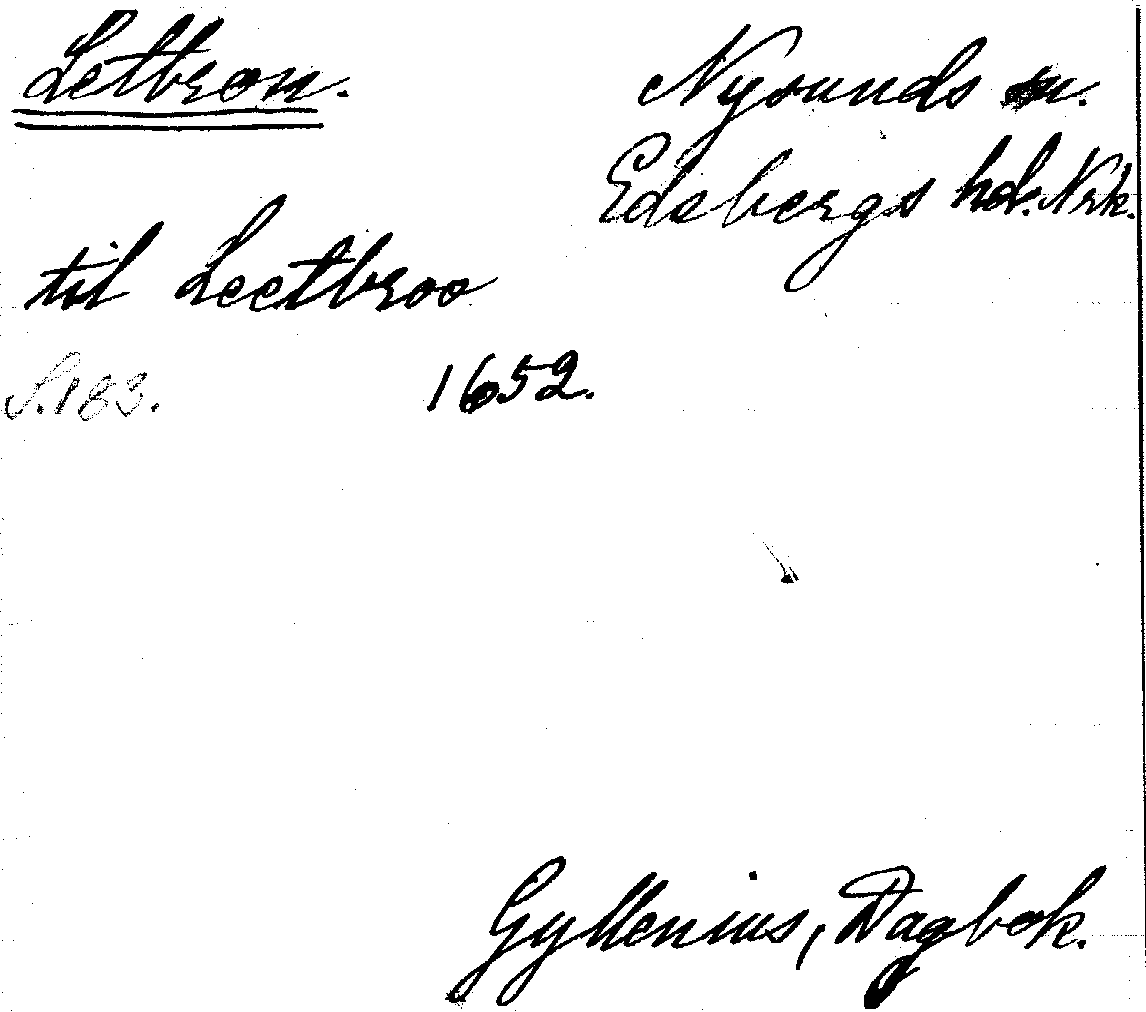 Letbron. Nysunds sn.
Edsbergs hd. Nrk.
til Leetbroo
S. 183. 1652.
Gyllenius, Dagbok.